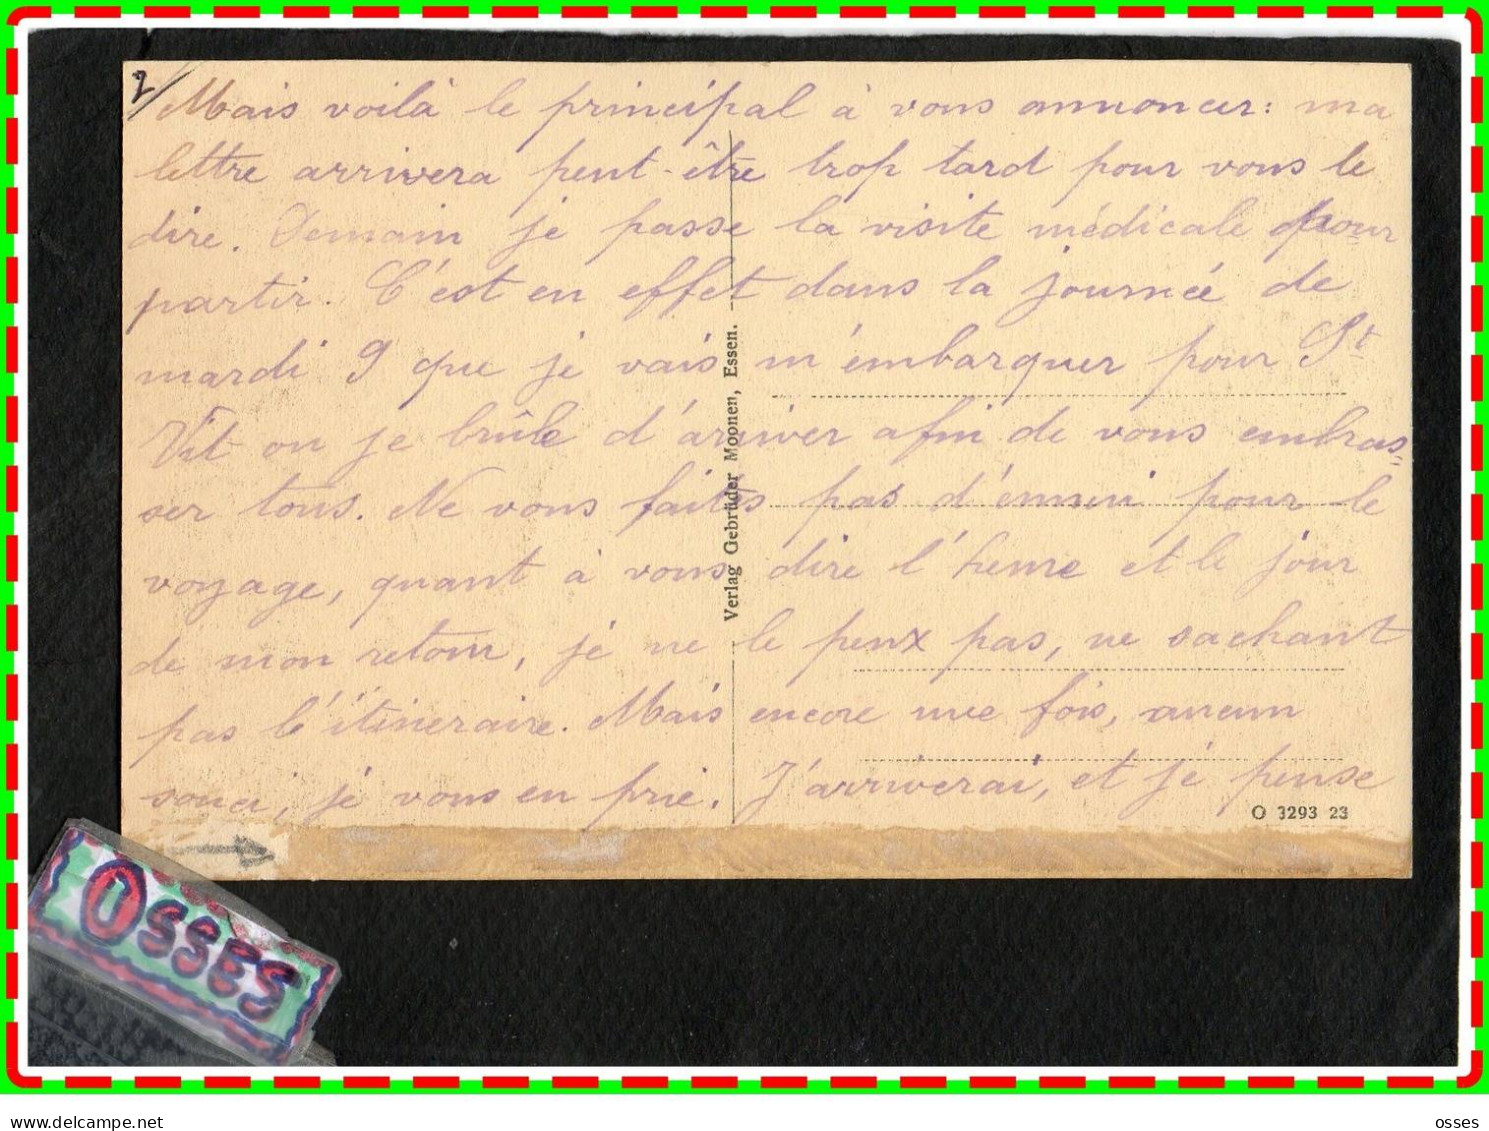 2/
Mais voilà le principal à vous annoncer: ma
lettre arrivera peut-être trop tard pour vous le
dire. Demain je passe la visite médicale pour
partir. C'est en effet dans la journée de
mardi 9 que je vais m'embarquer pour St
Vit ou je brûle d'arriver afin de vous embras=
ser tous. Ne vous faites pas d'ennui pour le
voyage, quant à vous dire l'heure et le jour
de mon retour, je ne le peux pas, ne sachant
pas l'itineraire. Mais encore une fois, aucun
souci, je vous en prie. J'arriverai, et je pense
Verlag Gebrüder Moonen, Essen.
O 3293 23
OSSES
www.delcampe.net
osses